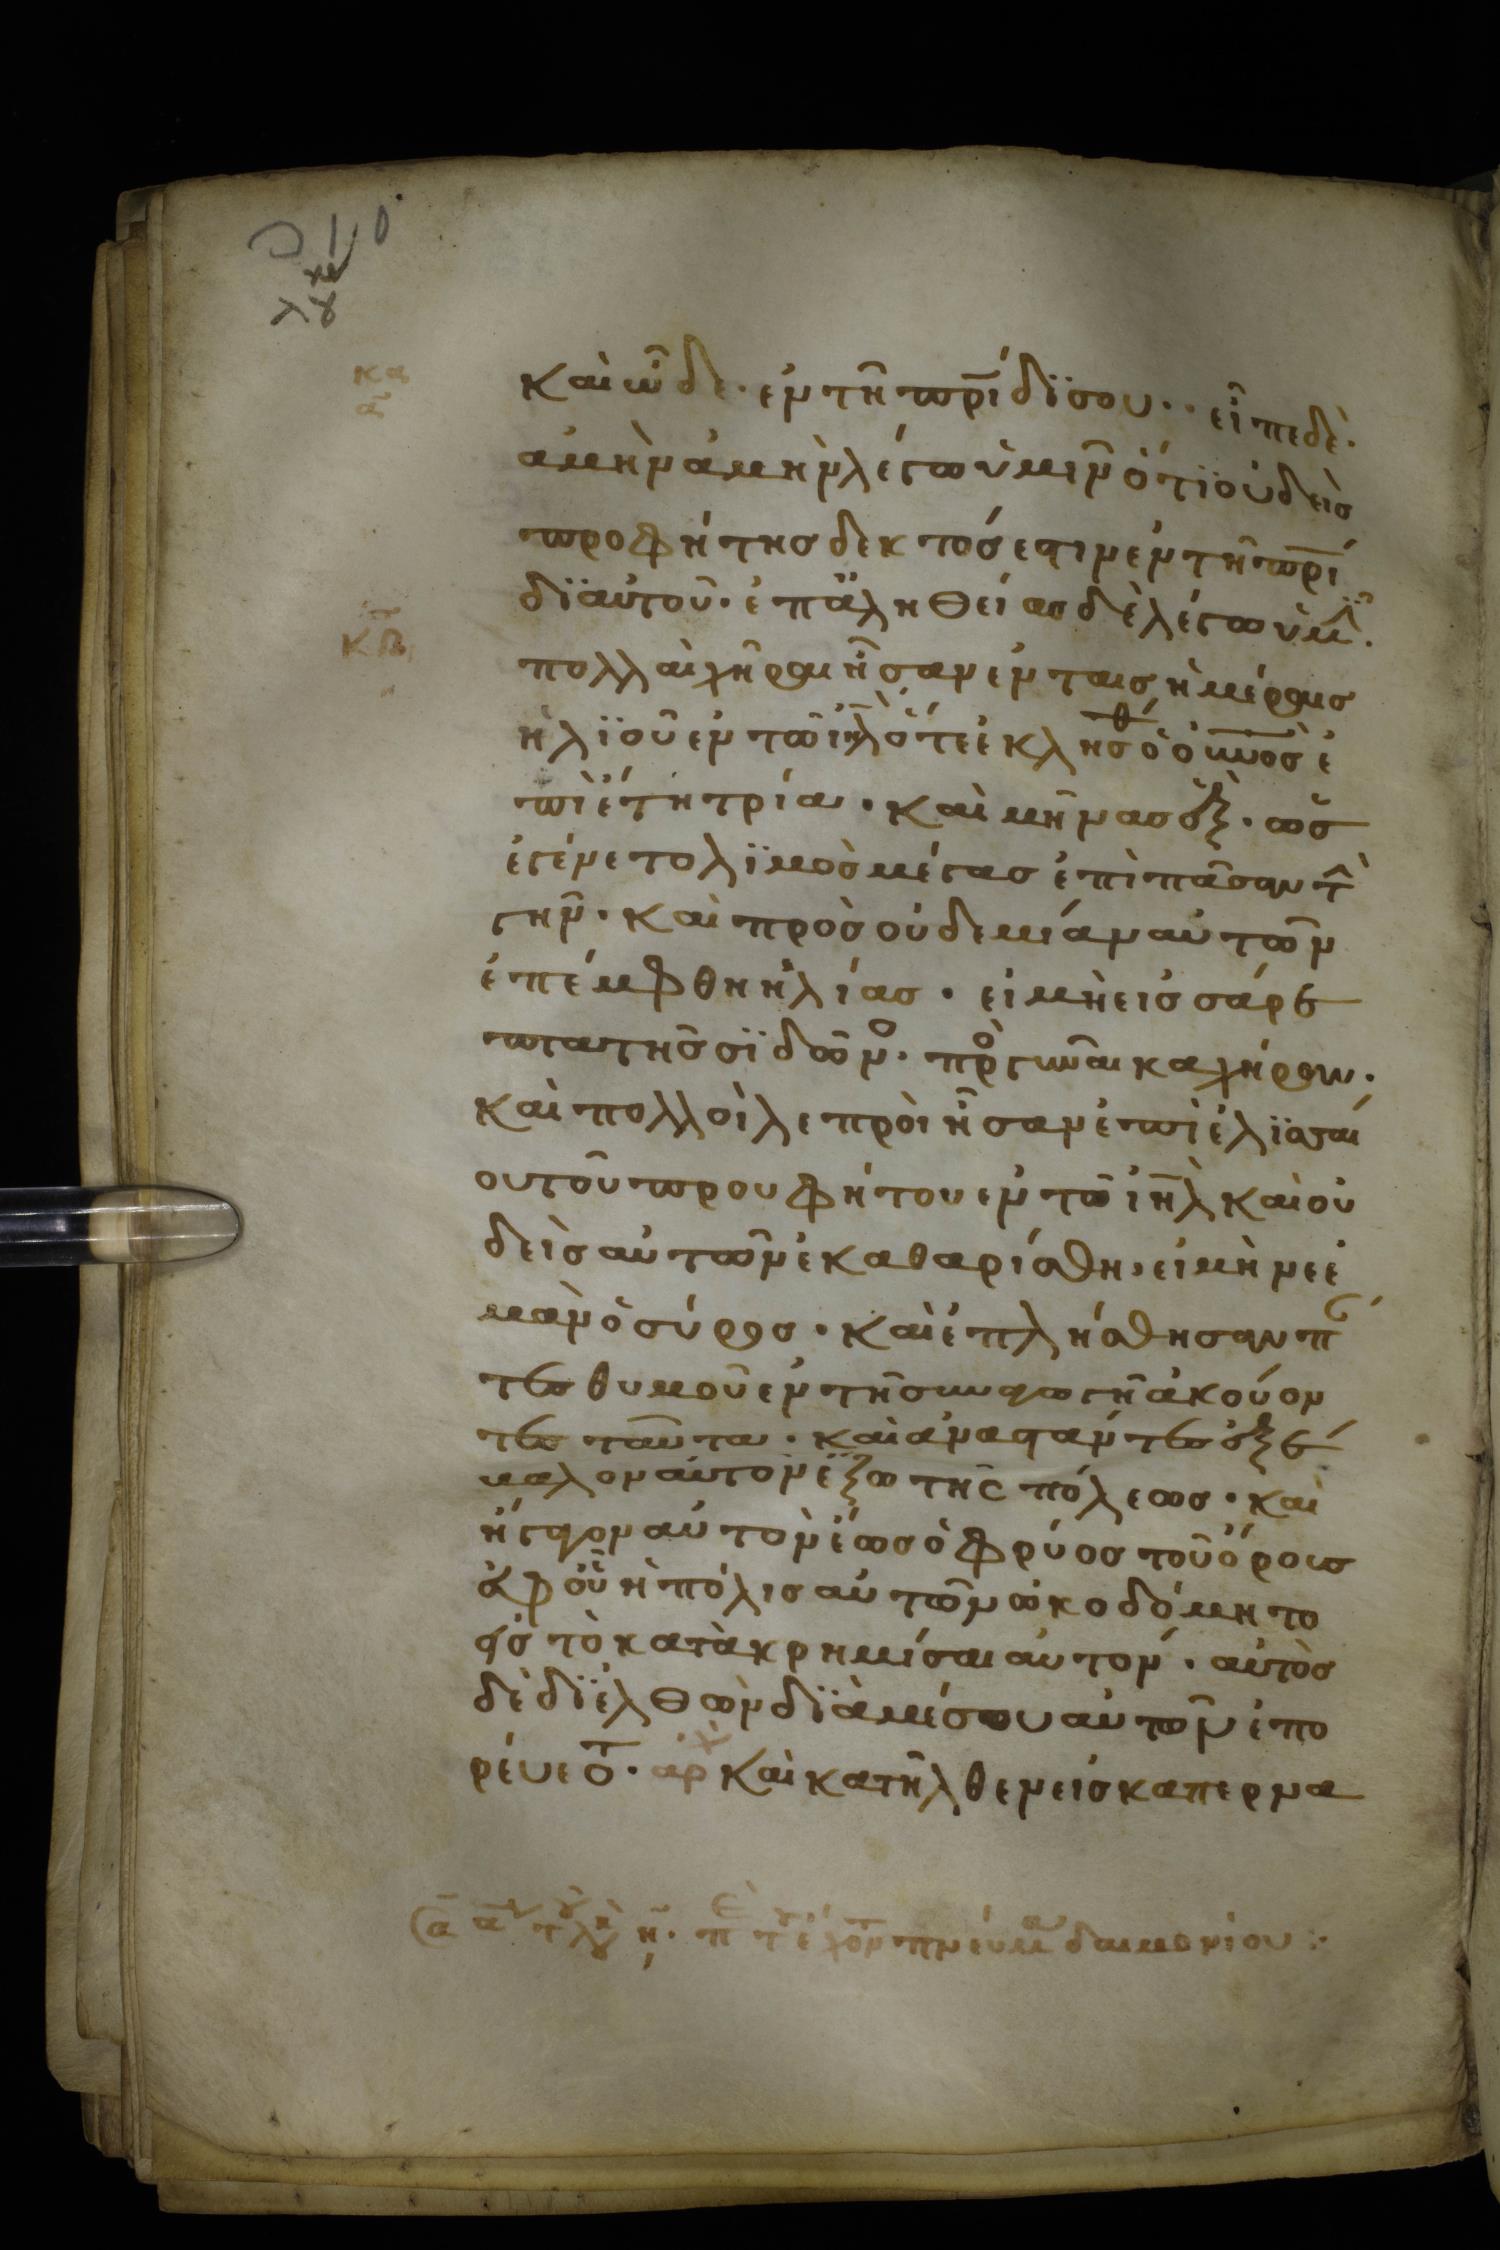 κα
α
κβ
καὶ ὧδε· ἐν τῆ πρ̅ί δϊ σου·· εἶπε δὲ·
ἀμὴν ἀμὴν λέγω ὑμῖν ὅτϊ οὐδεὶσ
προφήτησ δεκτόσ εστιν ἐν τῆ πρ̅ί
δϊ αὐτοῦ· ἐπ ἀληθείασ δὲ λέγω ὑμῖ·
πολλαὶ χῆραι ἦσαν ἐν ταισ ἡμέραισ
ἡλϊοῦ ἐν τῶ ιη̅λ ὅτε ἐκλήσθ ὁ οὐν̅οσ ἐ
πὶ έτη τρία· καὶ μῆνασ ἓξ· ὡσ
ἐγένετο λϊμὸσ μέγασ ἐπὶ πᾶσαν τὴ
γῆν· καὶ πρὸσ οὐδεμίαν αὐτῶν
ἐπέμφθη ἠλίασ· εἰ μὴ εισ σάρε
πτα τησ σϊδῶνο· πρὸ γυναῖκα χήραν·
καὶ πολλοὶ λεπροὶ ἦσαν ἐπὶ ἐλϊσσαί
ου τοῦ προυφήτου ἐν τῶ ιη̅λ καὶ οὐ
δεὶσ αὐτῶν ἐκαθαρίσθη, εἰ μὴ νεε
μὰν ὁ σύροσ· καὶ ἐπλήσθησαν πέ
τεσ θυμοῦ ἐν τῆ συναγωγῆ ἀκούον
τεσ ταῦτα· καὶ ἀναστάντεσ ἐξέ
βαλον αὐτὸν ἔξω τῆσ πόλεωσ· καὶ
ἤγαγον αὐτὸν ἕωσ ὀφρύοσ τοῦ ὄρουσ
ἀφ οὗ ἡ πόλισ αὐτῶν ὠκοδόμητο
εἰσ τὸ κατακρημνίσαι αὐτον· αὐτὸσ
δὲ δϊελθὼν δϊὰ μέσου αὐτῶν ἐπο
ρέυετο· αρχ καὶ κατῆλθεν εἰσ καπερνα